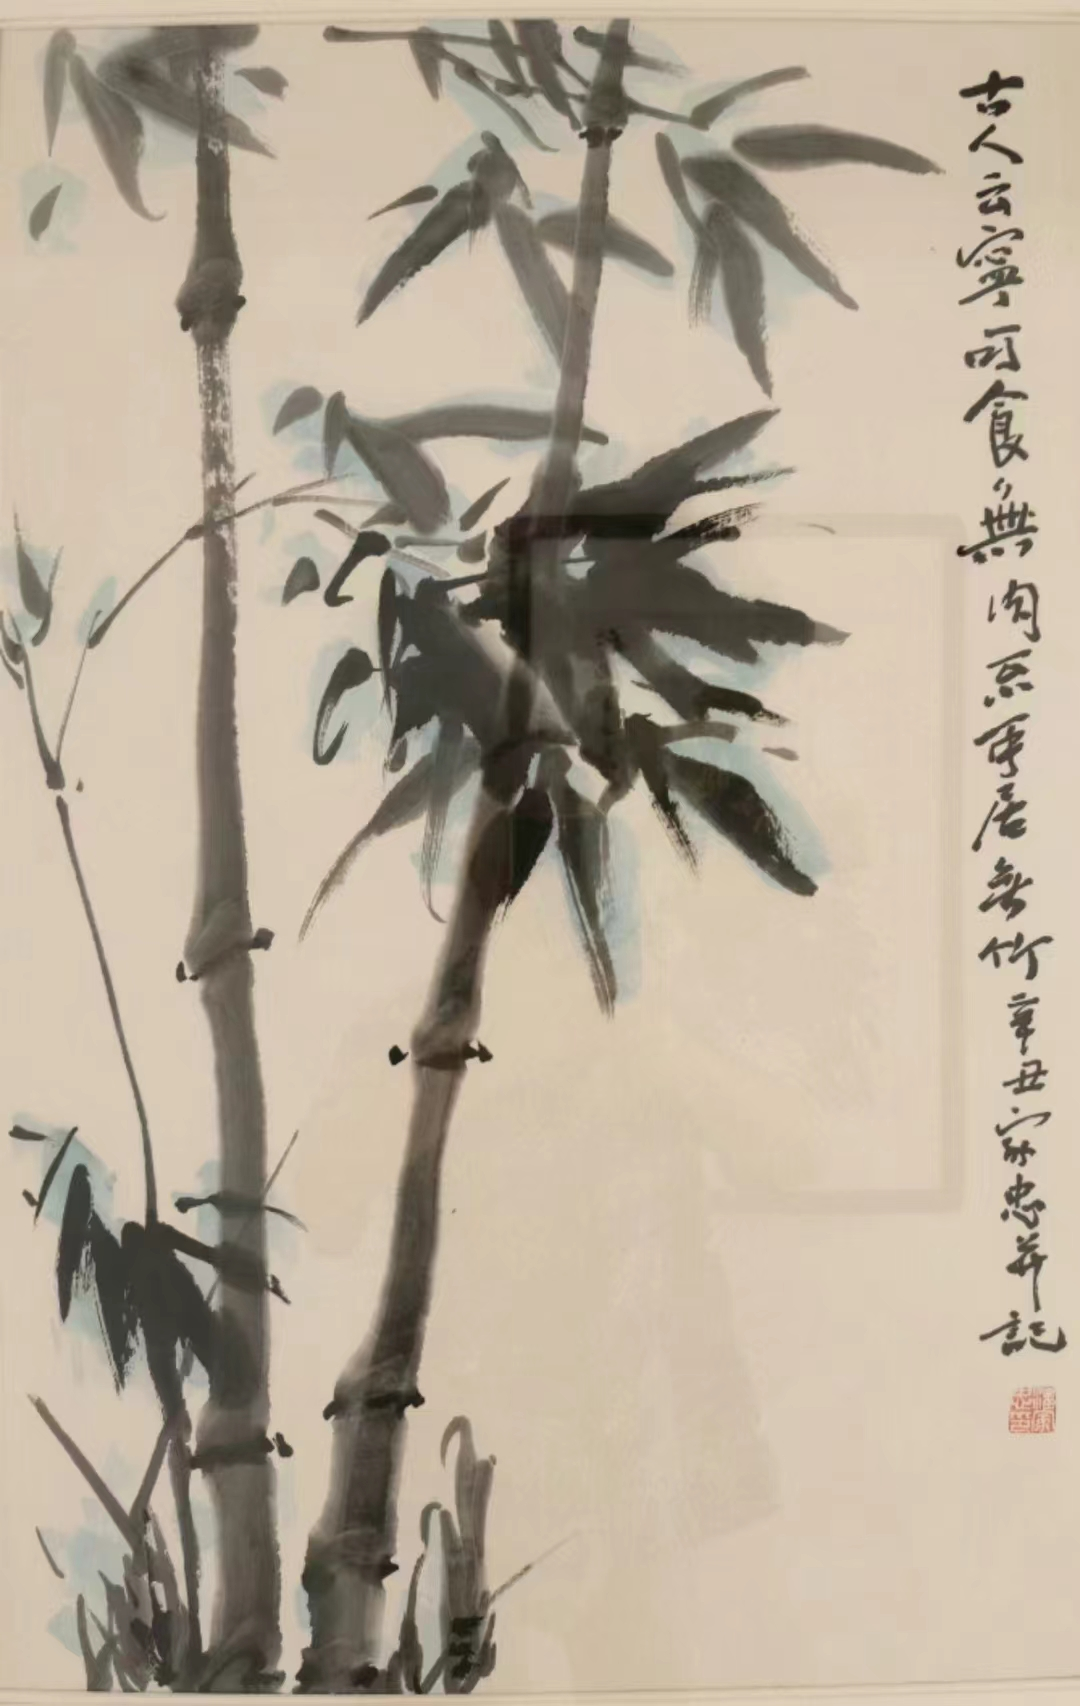 古人云寧可食無肉不可居無竹辛丑家忠并記